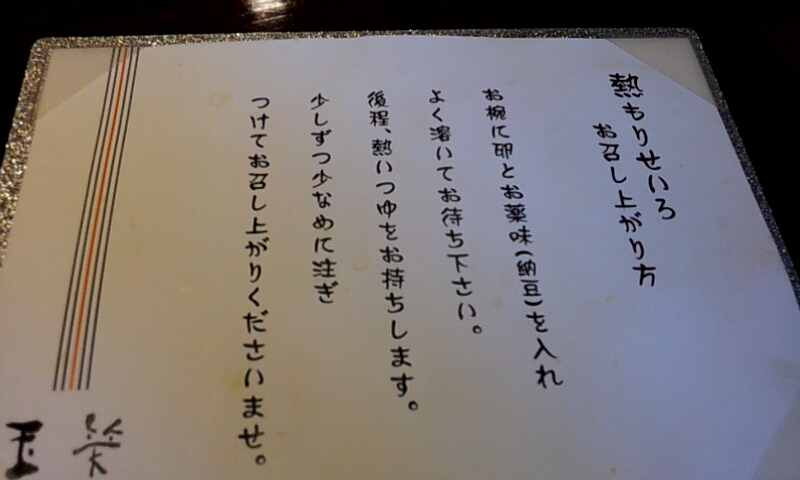 熱もりせいろ
お召し上がり方
お椀に卵とお薬味(納豆)を入れ
よく溶いてお待ち下さい。
後程、熱いつゆをお持ちします。
少しずつ少なめに注ぎ
つけてお召し上がりくださいませ。
玉笑